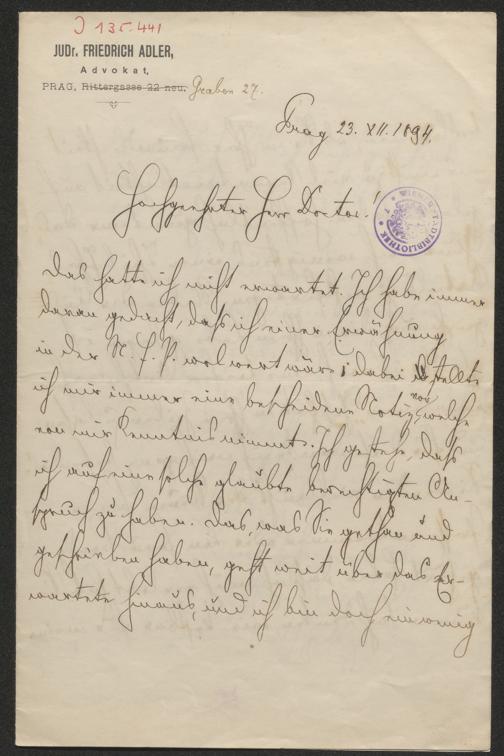 J 135.441
JUDr. FRIEDRICH ADLER,
Advokat,
PRAG, Rittergasse 22 neu. Graben 27.
Prag 23. XII. 1894.
Hochgeehrter Herr Doctor!
Das hatte ich nicht erwartet. Ich habe immer
daran gedacht, daß ich einer Erwähnung
in der N. f. P. wol wert wäre; dabei stellte
ich mir immer eine bescheidene Notiz vor, welche
von mir Kenntnis nimmt. Ich gestehe, daß
ich auf eine solche glaubte berechtigten An-
spruch zu haben. Das, was Sie gethan und
geschrieben haben, geht weit über das Er-
wartete hinaus, und ich bin doch ein wenig